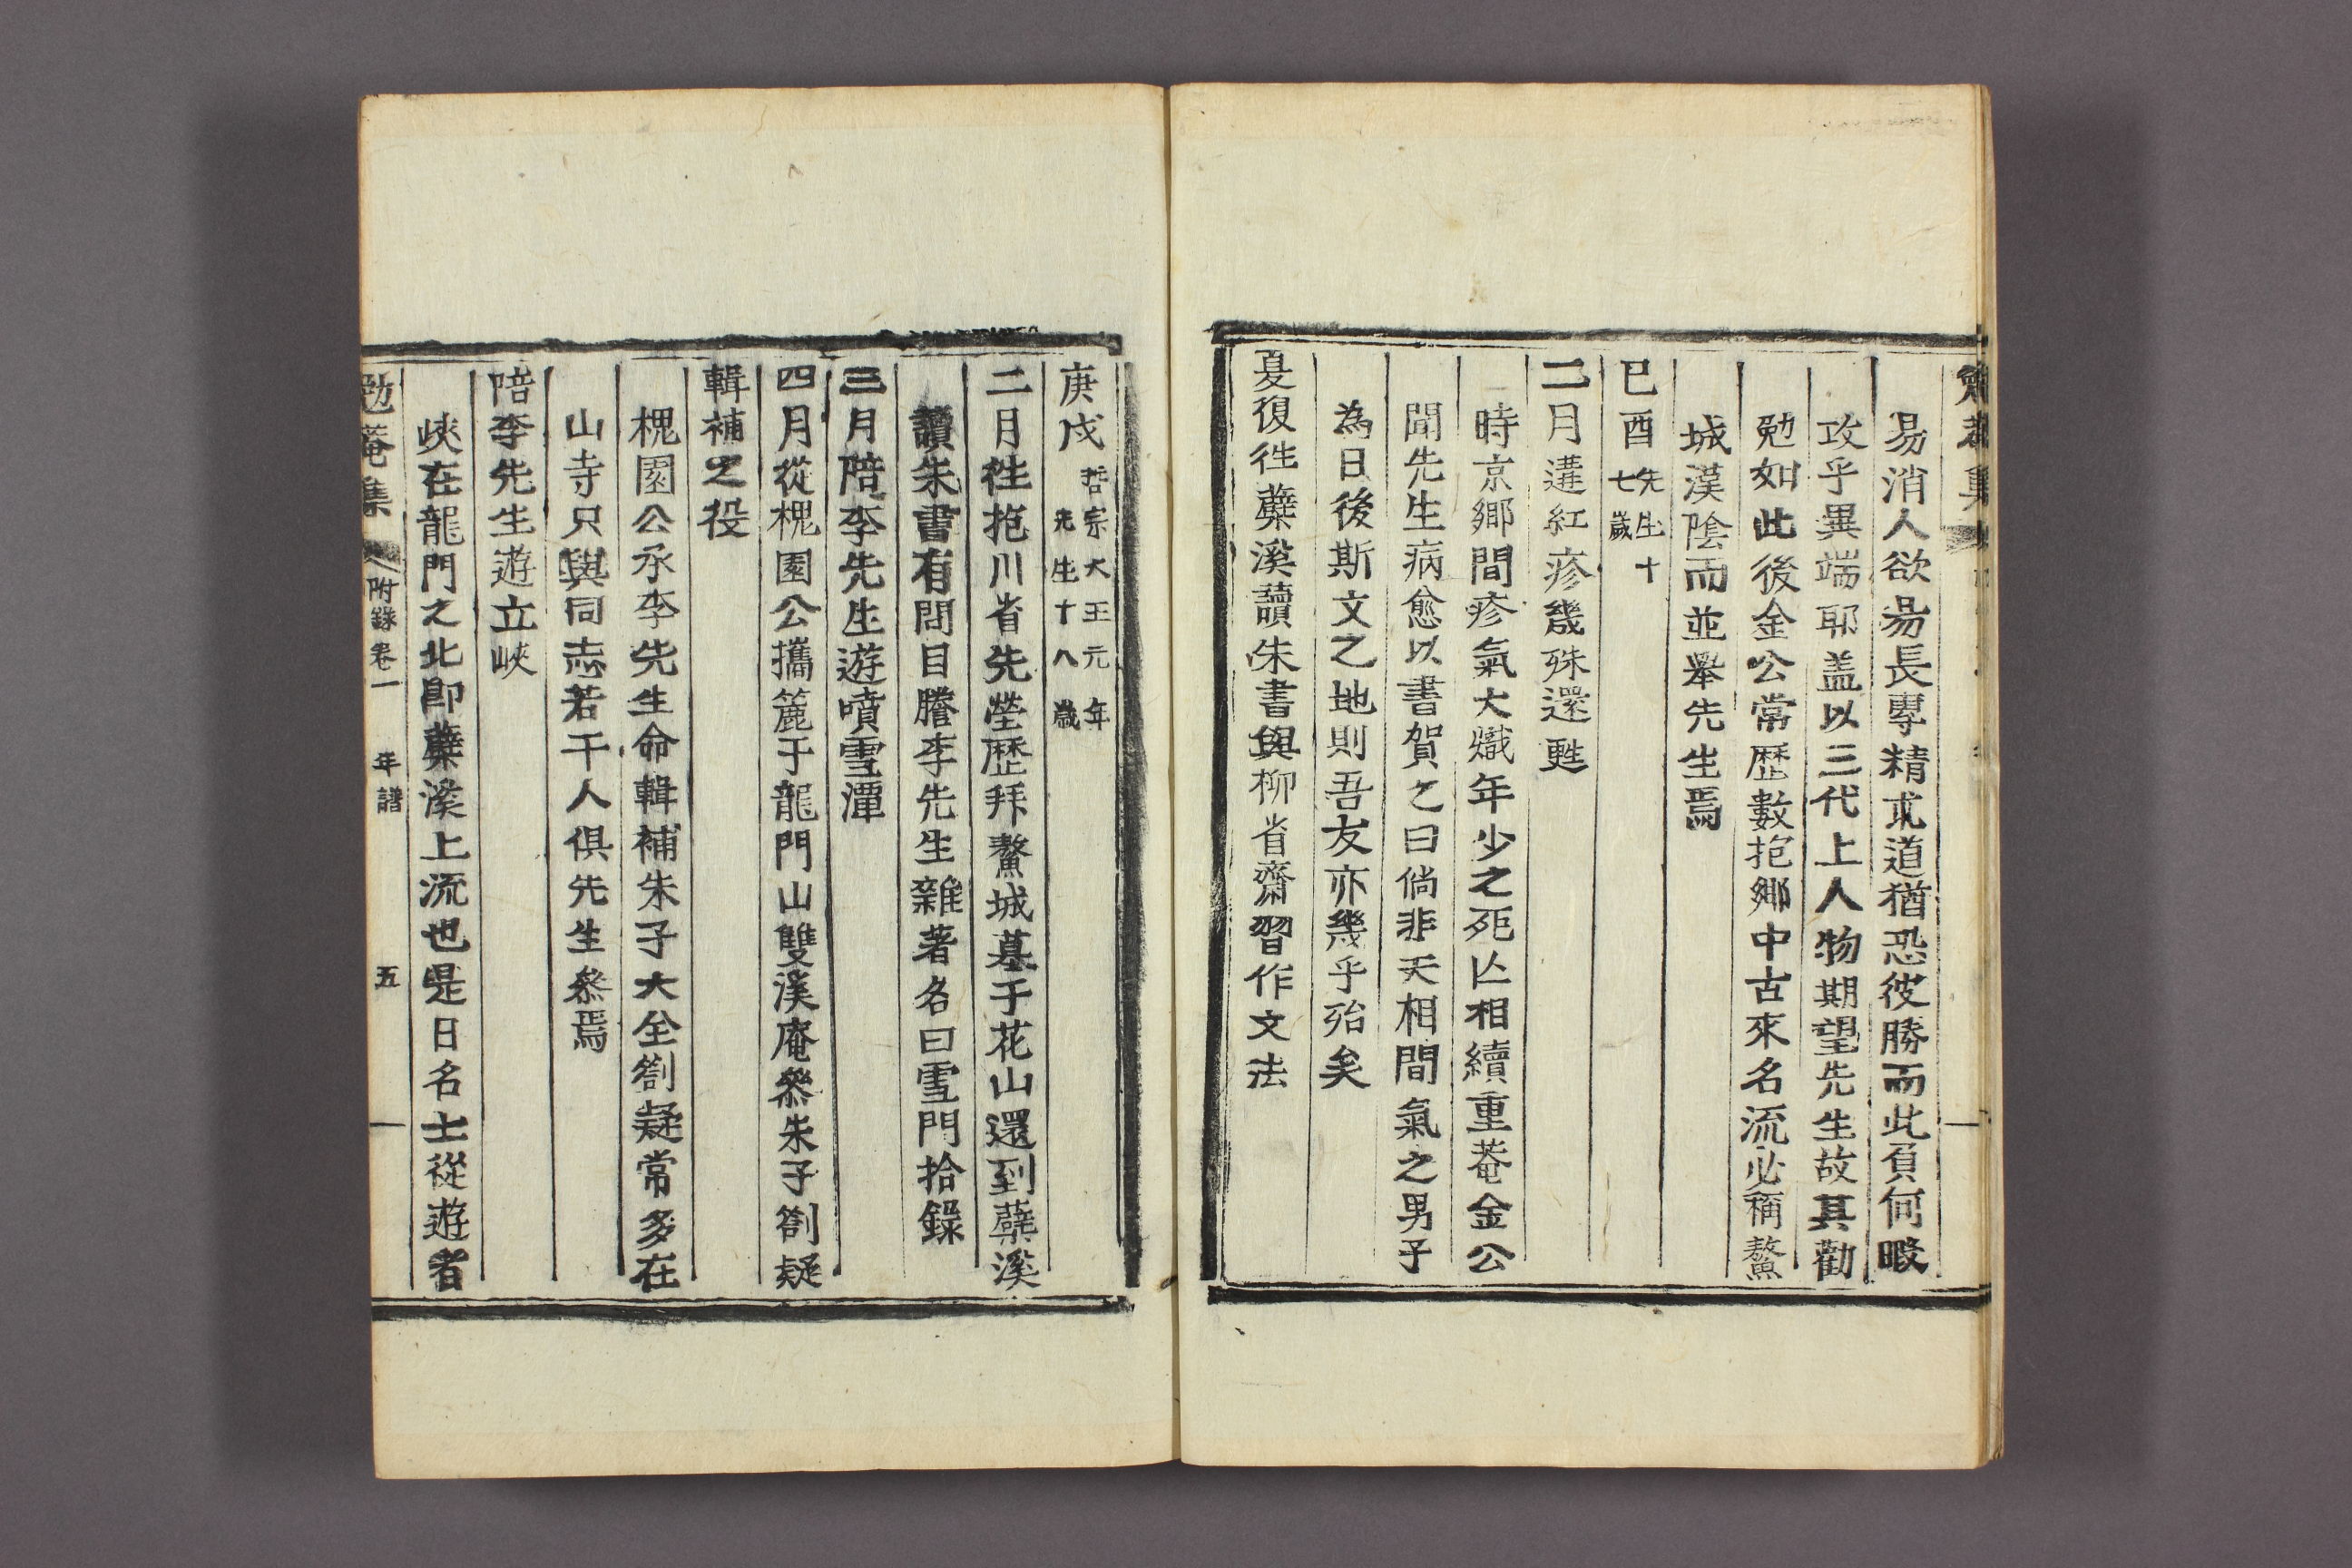 易消人欲易長專精求道猶恐彼勝而此負何暇
攻乎異端耶盖以三代上人物期望先生故其勸
勉如此後金公常歷數抱鄉中古來名流必稱鰲
城漢陰而並舉先生焉
己酉先生十七歲
二月遘紅疹幾殊還甦
時京鄉間疹氣大熾年少之死亾相續重菴金公
聞先生病愈以書賀之曰倘非天相間氣之男子
為日後斯文之地則吾友亦幾乎殆矣
夏復往蘗溪讀朱書與柳省齋習作文法
庚戌哲宗大王元年先生十八歲
二月徃抱川省先塋歷拜鰲城墓于花山還到蘗溪
讀朱書有問目謄李先生雜著名曰雪門拾錄
三月陪李先生遊噴雪潭
四月從槐園公攜簏于龍門山雙溪庵叅朱子劄疑
輯補之役
槐園公承李先生命輯補朱子大全劄疑常多在
山寺只與同志若干人俱先生叅焉
陪李先生遊立峽
峽在龍門之北卽蘗溪上流也是日名士從遊者
勉菴集 附錄卷一 年譜 五